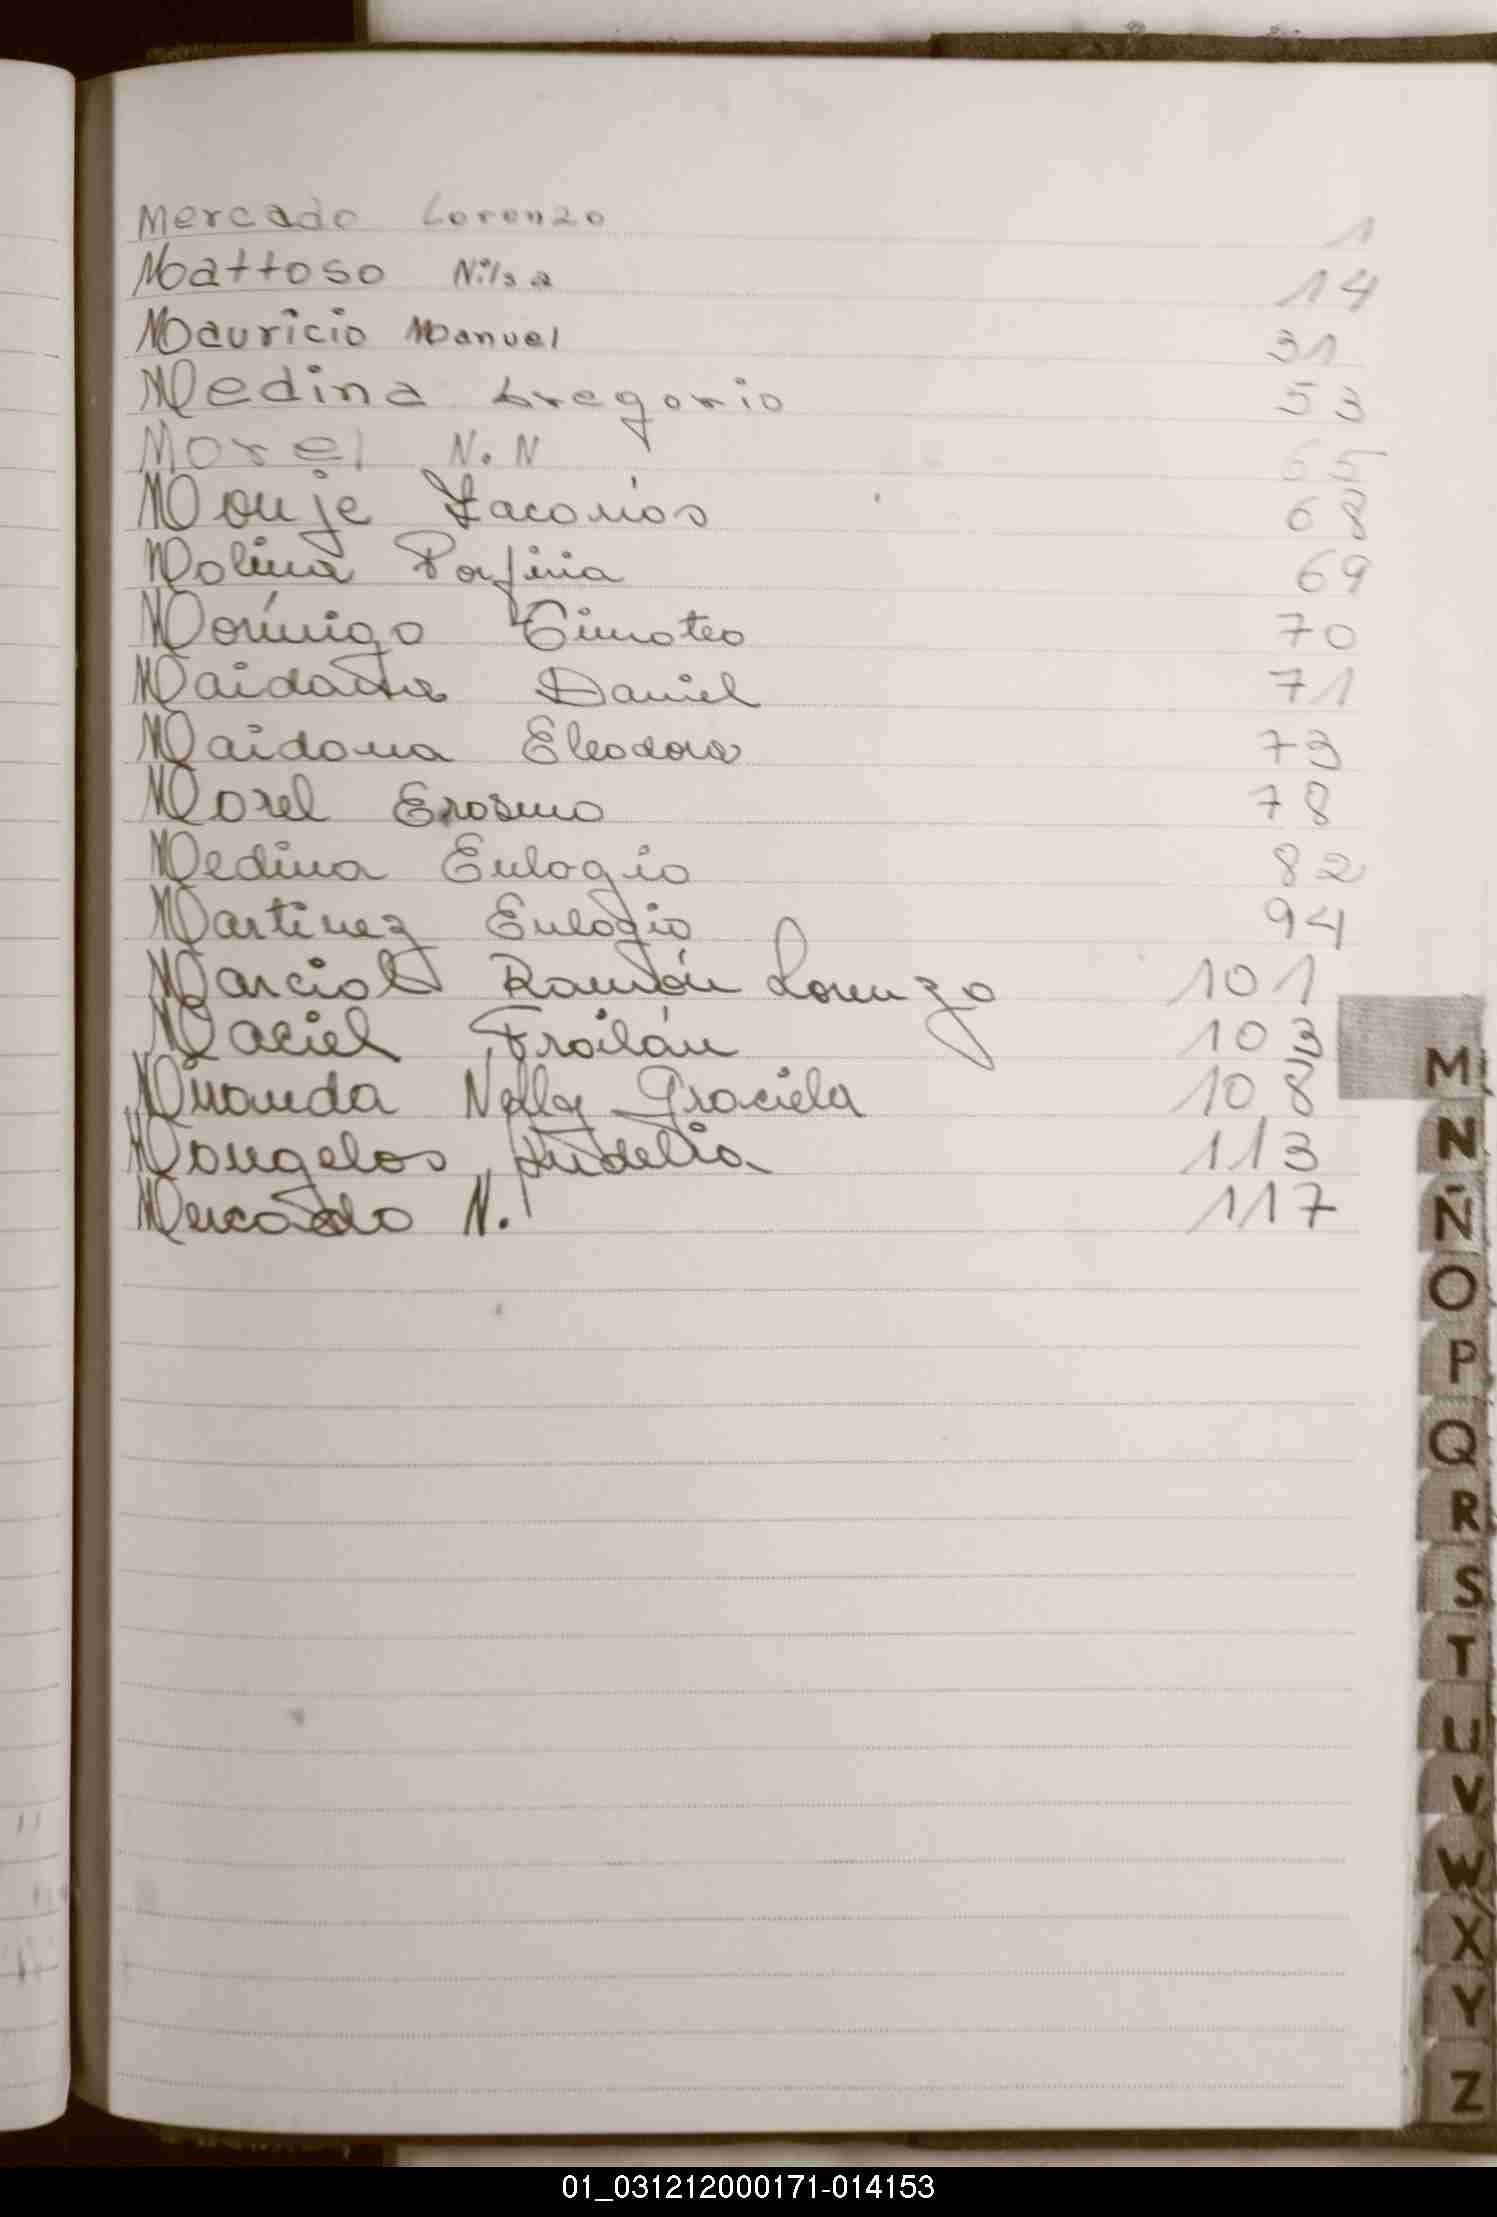 Mercado Lorenzo 1
Mattoso Nilsa 14
Mauricio Manuel 31
Medina Gregorio 53
Morel N.N 65
Monje Zacarías 68
Molina Porfiria 69
Morínigo Timoteo 70
Maidana Daniel 71
Maidana Eleodora 73
Morel Erasmo 78
Medina Eulogio 82
Martinez Eulogio 94
Marcial Ramón Lorenzo 101
Maciel Froilán 103
Miranda Nelly Graciela 108
Mongelos 113
Mercado N. 117
M
N
Ñ
O
P
Q
R
S
T
U
V
W
X
Y
Z
01_031212000171-014153